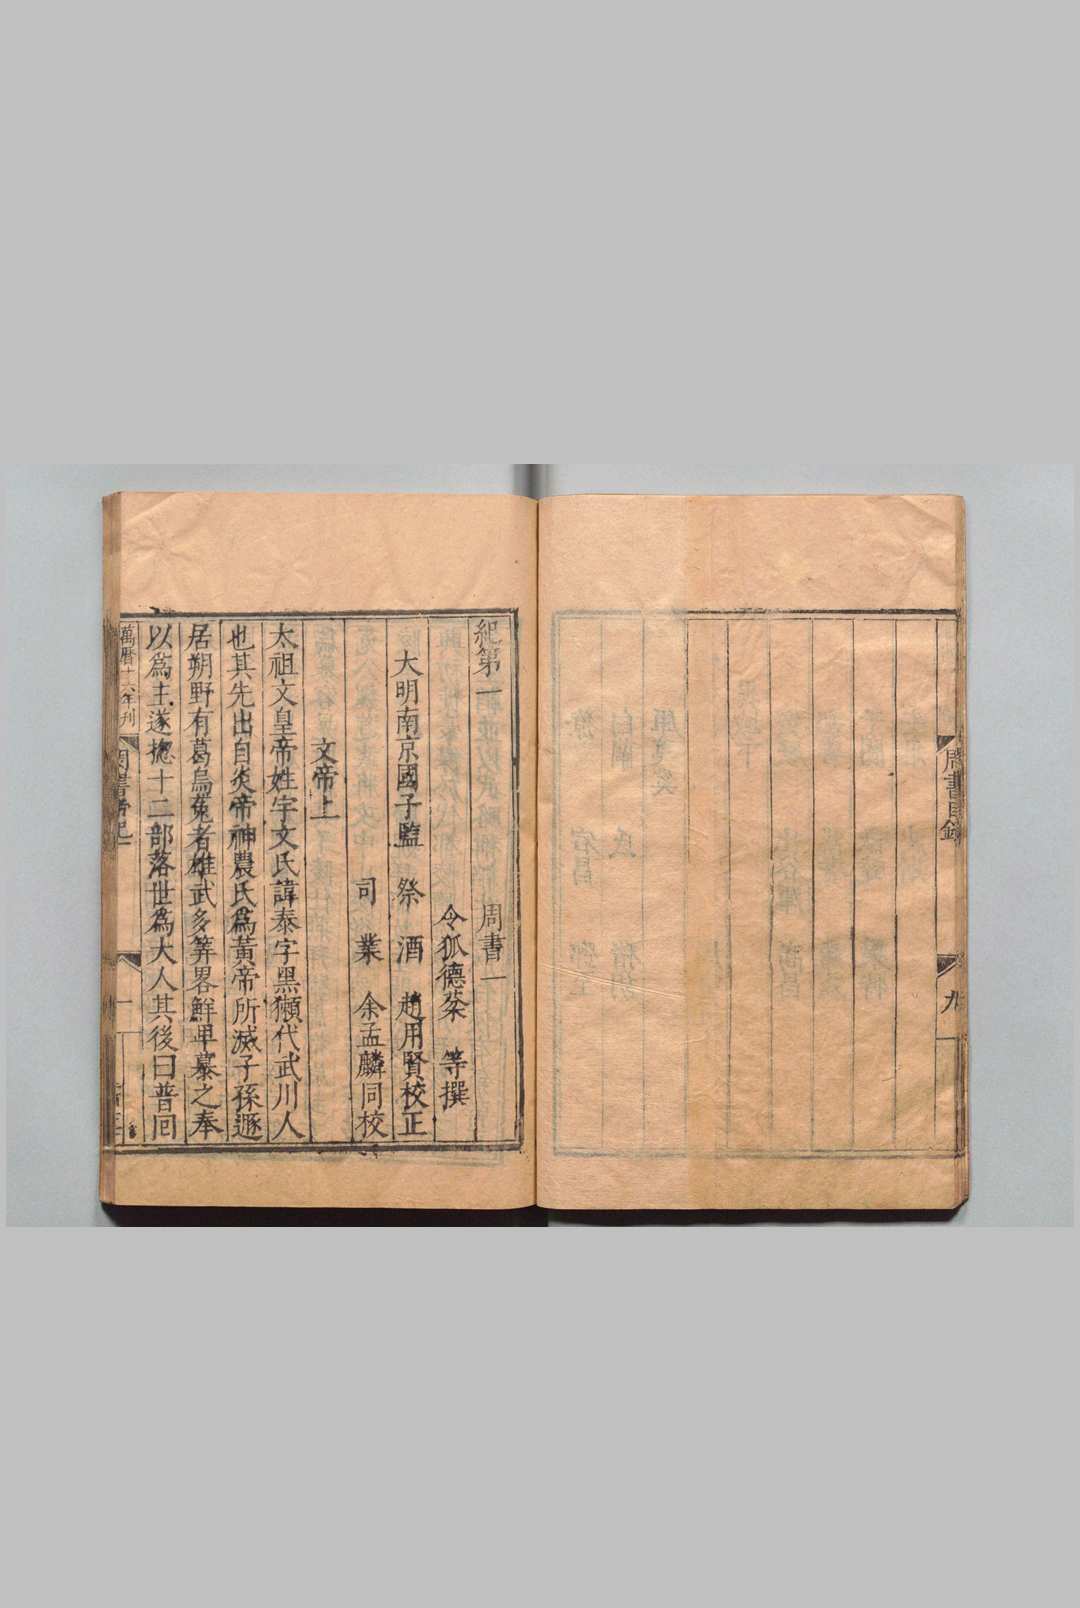 周書目錄
九
紀第一 周書一
令狐德棻 等撰
大明南京國子監 祭 酒 趙用賢校正
司 業 余孟麟同校
文帝上
太祖文皇帝姓宇文氏諱泰字黑獺代武川人
也其先出自炎帝神農氏爲黃帝所滅子孫遯
居朔野有葛烏菟者雄武多筭畧鮮卑慕之奉
以爲主遂揔十二部落世爲大人其後曰普回
萬曆十六年刊
周書帝紀一
一